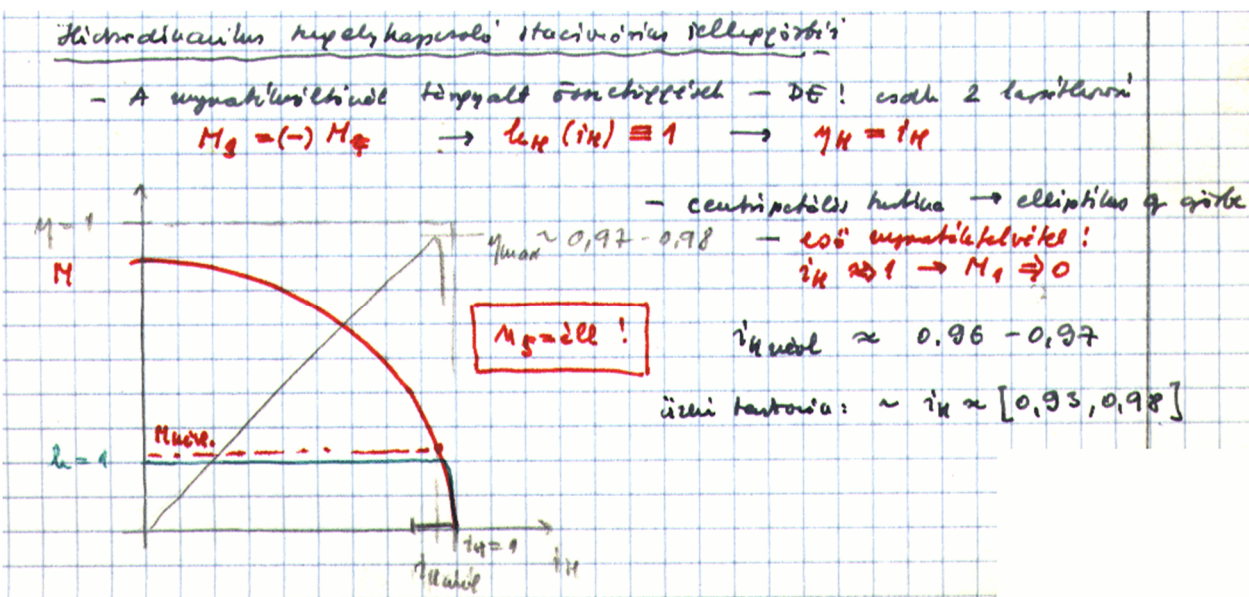 Hidrodinamikus tengelykapcsoló stacionárius jelleggörbéi
- A nyomatékváltónál tárgyalt összefüggések - DE! csak 2 lapátkoszorú
M₁ = (-) M₂ → k_H (i_H) ≡ 1 → η_H = i_H
- centripetális turbina → elliptikus q görbe
η = 1
η max ~ 0,97 - 0,98
- eső nyomatékfelvétel!
i_H ⇒ 1 → M₁ ⇒ 0
M
= áll !
i_H névl ≈ 0.96 - 0,97
üzemi tartomány: ~ i_H ≈ [0,95, 0,98]
M névl.
k = 1
i_H = 1
i_H névl
i_H